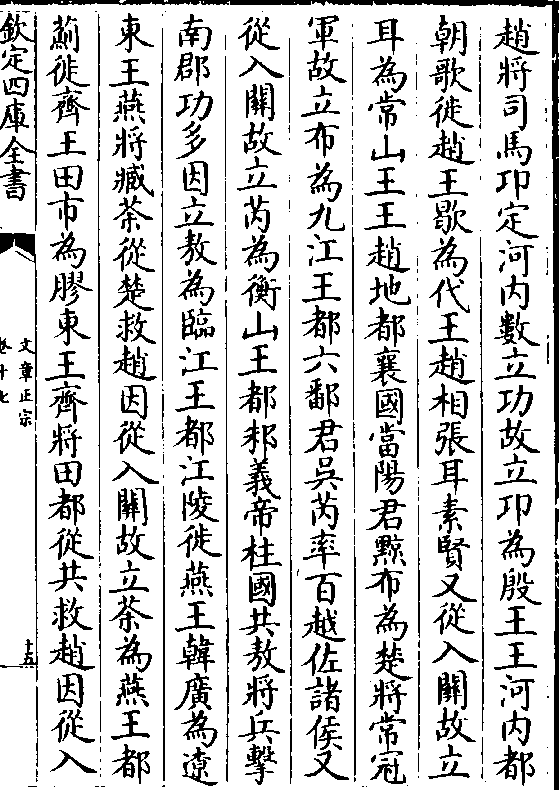 趙將司馬卬定河内數立功故立卬為殷王王河内都
朝歌徙趙王歇為代王趙相張耳素賢又從入關故立
耳為常山王王趙地都襄國當陽君黥布為楚將常冠
軍故立布為九江王都六鄱君吳芮率百越佐諸侯又
從入關故立芮為衡山王都邾義帝柱國共敖將兵擊
南郡功多因立敖為臨江王都江陵徙燕王韓廣為遼
東王燕將臧荼從楚救趙因從入關故立荼為燕王都
薊徙齊王田市為膠東王齊將田都從共救趙因從入
欽定四庫全書
文章正宗
卷十七
十五